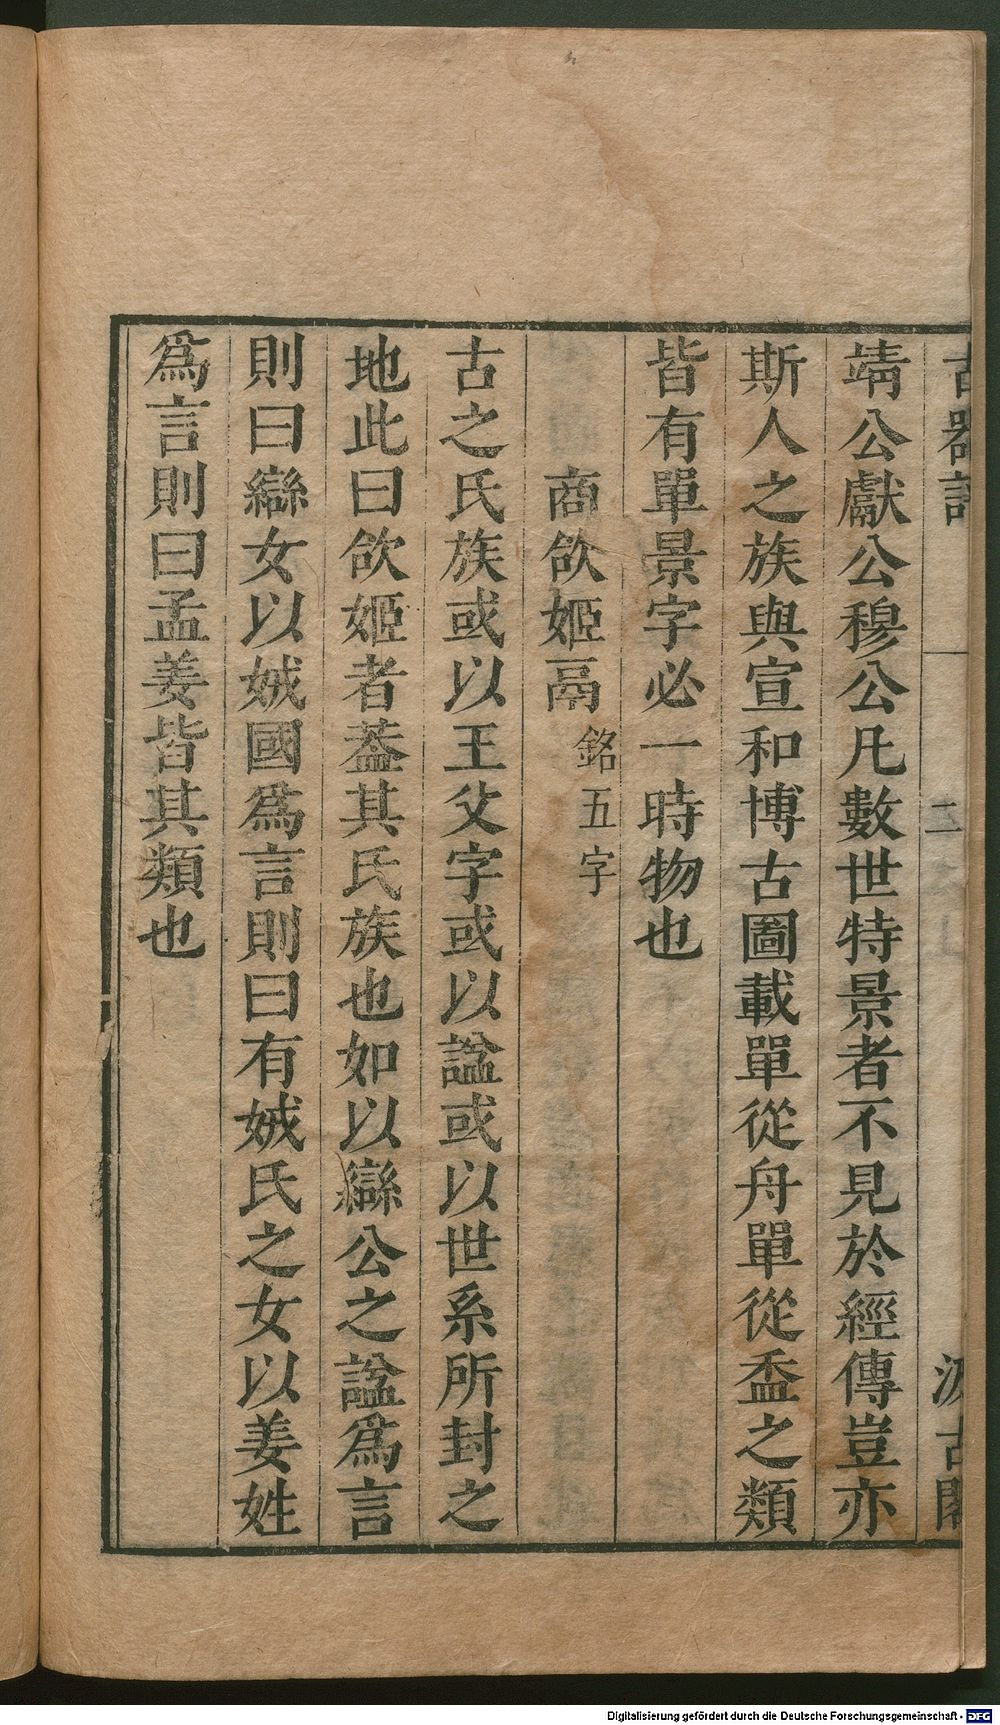 古器評 二 汲古閣
靖公獻公穆公凡數世特景者不見於經傳豈亦
斯人之族與宣和博古圖載單從舟單從盉之類
皆有單景字必一時物也
商欱姬鬲銘五字
古之氏族或以王父字或以諡或以世系所封之
地此曰欱姬者葢其氏族也如以䜌公之諡爲言
則曰䜌女以娀國爲言則曰有娀氏之女以姜姓
爲言則曰孟姜皆其類也
Digitalisierung gefördert durch die Deutsche Forschungsgemeinschaft - DFG